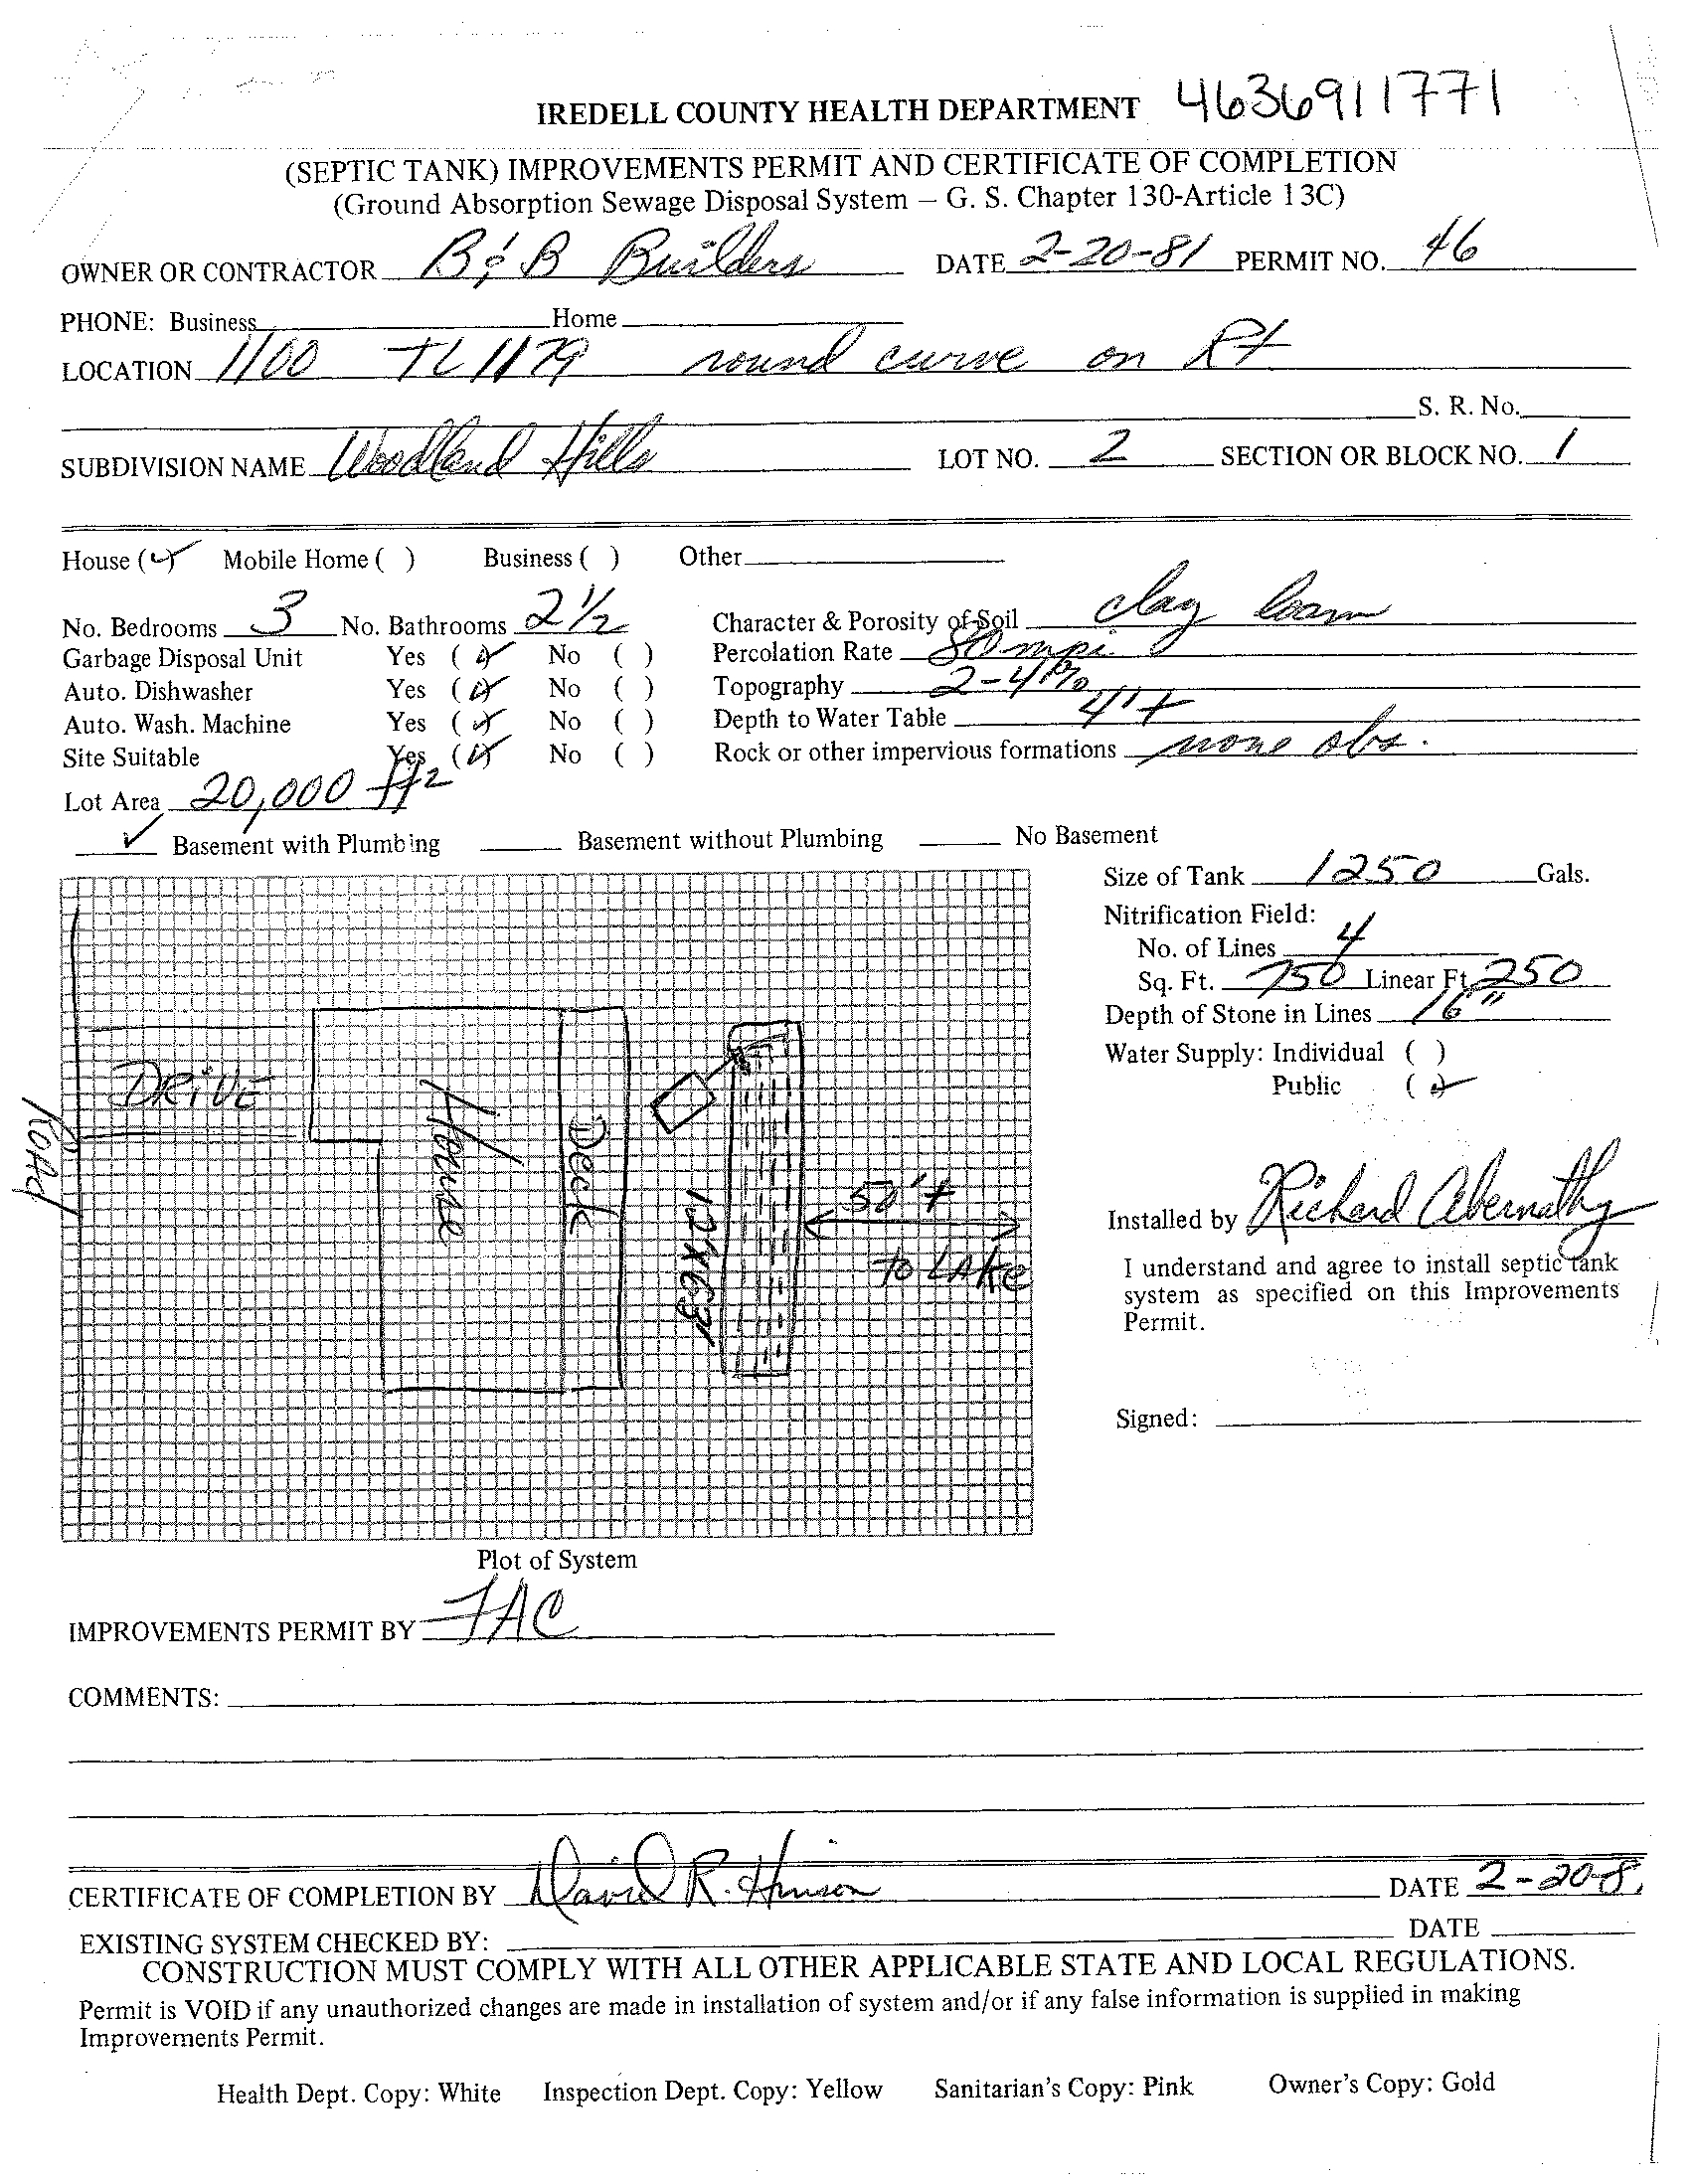 IREDELL COUNTY HEALTH DEPARTMENT 4636911771
(SEPTIC TANK) IMPROVEMENTS PERMIT AND CERTIFICATE OF COMPLETION
(Ground Absorption Sewage Disposal System – G. S. Chapter 130-Article 13C)
OWNER OR CONTRACTOR B & B Builders DATE 2-20-81 PERMIT NO. 46
PHONE: Business Home
LOCATION 1100 TL 1179 round curve on Rt
S. R. No.
SUBDIVISION NAME Woodland Hills LOT NO. 2 SECTION OR BLOCK NO. 1
House (✓) Mobile Home ( ) Business ( ) Other
No. Bedrooms 3 No. Bathrooms 2 1/2 Character & Porosity of Soil clay loam
Garbage Disposal Unit Yes (✓) No ( ) Percolation Rate 80 mpi
Auto. Dishwasher Yes (✓) No ( ) Topography 2-4%
Auto. Wash. Machine Yes (✓) No ( ) Depth to Water Table 4'+
Site Suitable Yes (✓) No ( ) Rock or other impervious formations none obs.
Lot Area 20,000 ft2
✓ Basement with Plumbing Basement without Plumbing No Basement
Size of Tank 1250 Gals.
Nitrification Field:
No. of Lines 4
Sq. Ft. 750 Linear Ft. 250
Depth of Stone in Lines 16"
Water Supply: Individual ( )
Public (✓)
ROAD
DRIVE
House
Deck
12'x63'
50'+
to LAKE
Installed by Richard Abernathy
I understand and agree to install septic tank
system as specified on this Improvements
Permit.
Signed:
Plot of System
IMPROVEMENTS PERMIT BY JAC
COMMENTS:
CERTIFICATE OF COMPLETION BY David R. Hinson DATE 2-20-8
EXISTING SYSTEM CHECKED BY: DATE
CONSTRUCTION MUST COMPLY WITH ALL OTHER APPLICABLE STATE AND LOCAL REGULATIONS.
Permit is VOID if any unauthorized changes are made in installation of system and/or if any false information is supplied in making
Improvements Permit.
Health Dept. Copy: White Inspection Dept. Copy: Yellow Sanitarian's Copy: Pink Owner's Copy: Gold